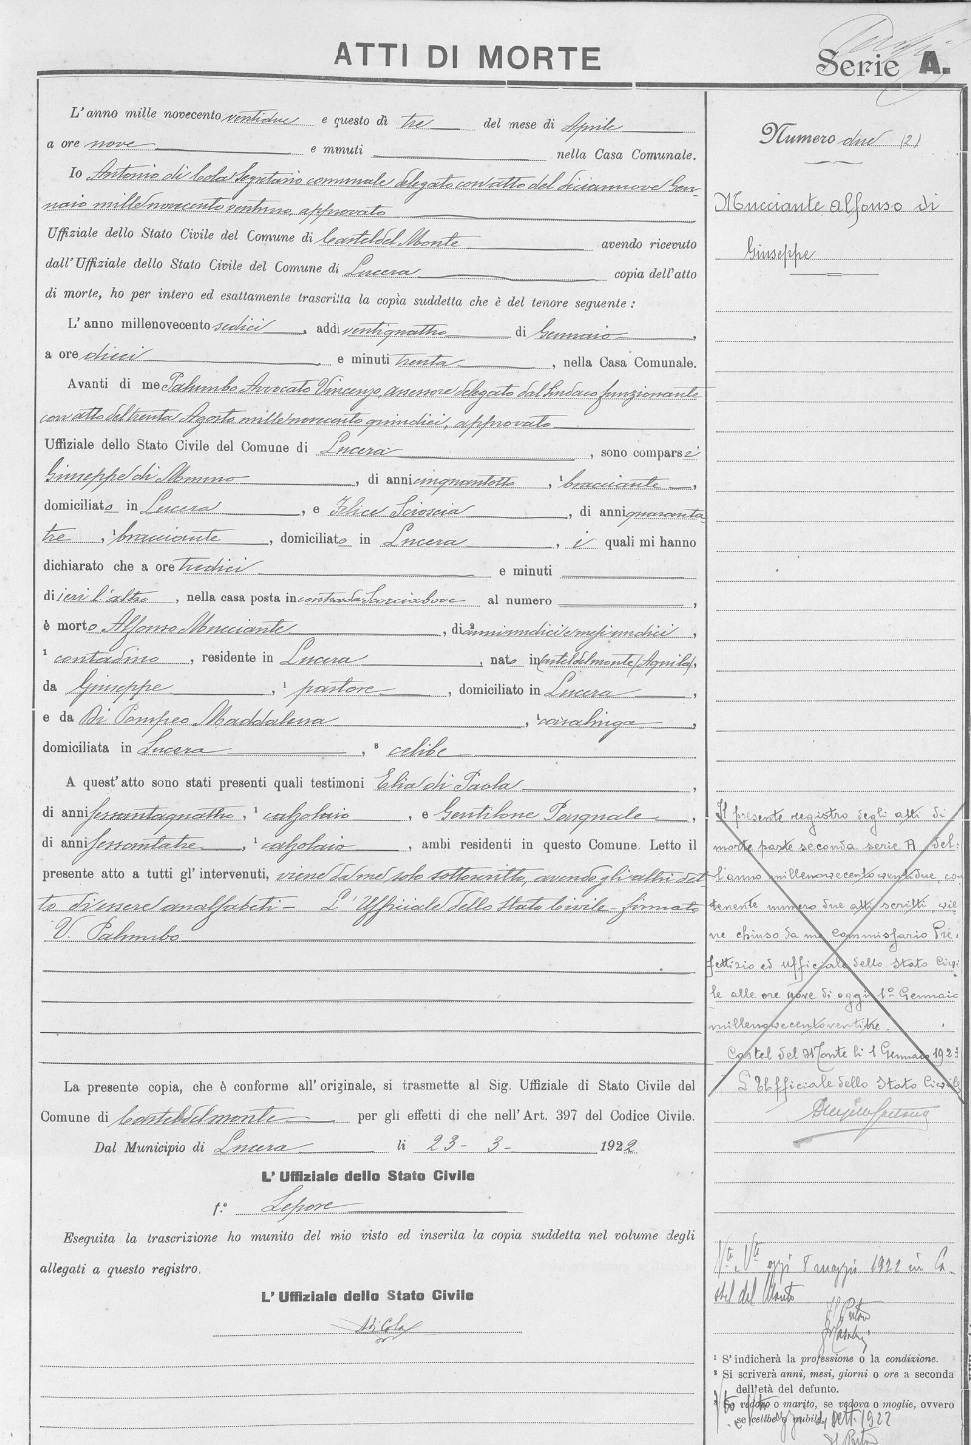 ATTI DI MORTE
Serie A.
L'anno mille novecento ventidue e questo dì tre del mese di Aprile
a ore nove e minuti nella Casa Comunale.
Io Antonio di Cola Segretario comunale delegato con atto del diciannove Gen-
naio mille novecento ventuno, approvato
Uffiziale dello Stato Civile del Comune di Castel del Monte avendo ricevuto
dall'Uffiziale dello Stato Civile del Comune di Lucera copia dell'atto
di morte, ho per intero ed esattamente trascritta la copia suddetta che è del tenore seguente :
L'anno millenovecento sedici, addì ventiquattro di Gennaio,
a ore dieci e minuti trenta, nella Casa Comunale.
Avanti di me Palumbo Avvocato Vincenzo, assessore delegato dal Sindaco funzionante
con atto del trenta Agosto mille novecento quindici, approvato
Uffiziale dello Stato Civile del Comune di Lucera, sono comparsi
Giuseppe di Mommo, di anni cinquantotto, ¹ bracciante,
domiciliato in Lucera, e Felice Scioscia, di anni quaranta
tre, ¹ bracciante, domiciliato in Lucera, i quali mi hanno
dichiarato che a ore tredici e minuti
di ieri l'altro, nella casa posta in contrada al numero ,
è morto Alfonso Mucciante, di ² anni undici e mesi undici,
¹ contadino, residente in Lucera, nato in Casteldelmonte (Aquila),
da Giuseppe, ¹ pastore, domiciliato in Lucera,
e da Di Pompeo Maddalena, ¹ casalinga,
domiciliata in Lucera, ³ celibe
A quest'atto sono stati presenti quali testimoni Elia di Paola,
di anni sessantaquattro, ¹ calzolaio, e Gentilone Pasquale,
di anni sessantatre, ¹ calzolaio, ambi residenti in questo Comune. Letto il
presente atto a tutti gl'intervenuti, viene da me solo sottoscritto, avendo gli altri det-
to di essere analfabeti - L'Uffiziale dello Stato Civile - firmato
V. Palumbo
La presente copia, che è conforme all'originale, si trasmette al Sig. Uffiziale di Stato Civile del
Comune di Casteldelmonte per gli effetti di che nell'Art. 397 del Codice Civile.
Dal Municipio di Lucera li 23-3-1922
L'Uffiziale dello Stato Civile
f.º Lepore
Eseguita la trascrizione ho munito del mio visto ed inserita la copia suddetta nel volume degli
allegati a questo registro.
L'Uffiziale dello Stato Civile
A di Cola
Numero due (2)
Mucciante Alfonso di
Giuseppe
Il presente registro degli atti di
morte parte seconda serie A del-
l'anno millenovecentoventidue, con
tenente numero due atti scritti, vie
ne chiuso da me Commissario Pre-
fettizio ed ufficiale dello Stato Civi-
le alle ore nove di oggi 1º Gennaio
millenovecentoventitre.
Castel del Monte li 1 Gennaio 1923
L'Ufficiale dello Stato Civile
oggi 8 maggio 1922 in Ca-
stel del Monte
Il Pretore
¹ S'indicherà la professione o la condizione.
² Si scriverà anni, mesi, giorni o ore a seconda
dell'età del defunto.
³ Se vedovo o marito, se vedova o moglie, ovvero
se celibe o nubile.
sett. 1922
Il Pretore